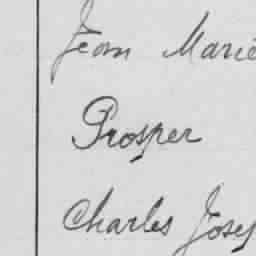 Jean Marie
Prosper
Charles Josep